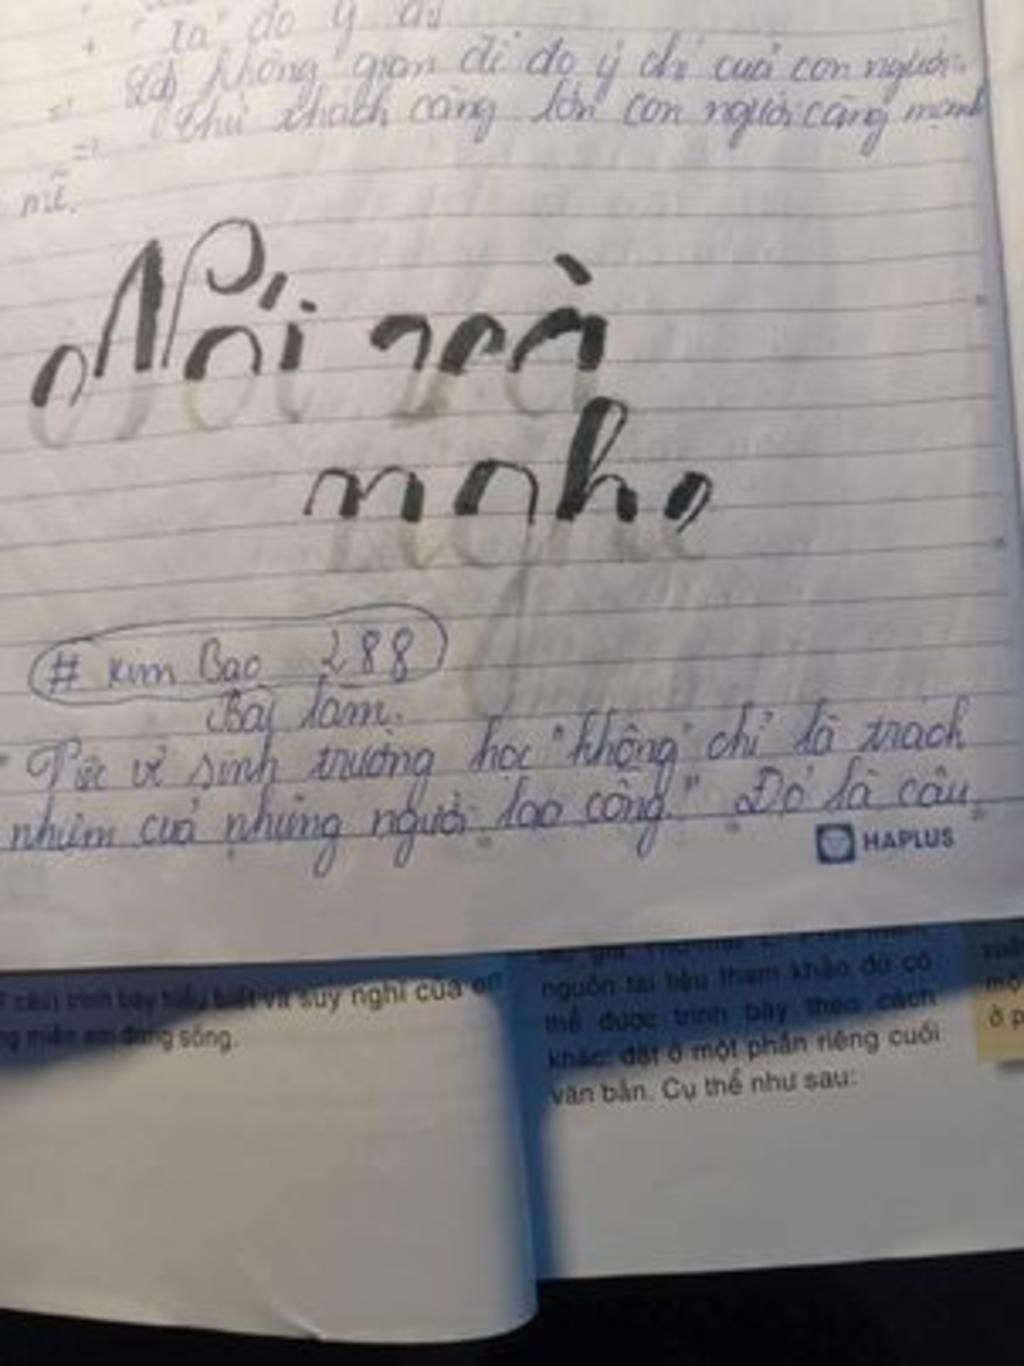 "Ta" do ý
=> không gian đi do ý chí của con người.
=> Thử thách càng lớn con người càng mạnh
mẽ.
Nói và
nghe
# Kim Bảo 288
Bài làm.
vệ sinh trường học "không" chỉ là trách
nhiệm của những người lao công." Đó là câu
HAPLUS
trình bày hiểu biết và suy nghĩ của em
miền em đang sống.
nguồn tài liệu tham khảo đó có
thể được trình bày theo cách
khác: đặt ở một phần riêng cuối
văn bản. Cụ thể như sau: